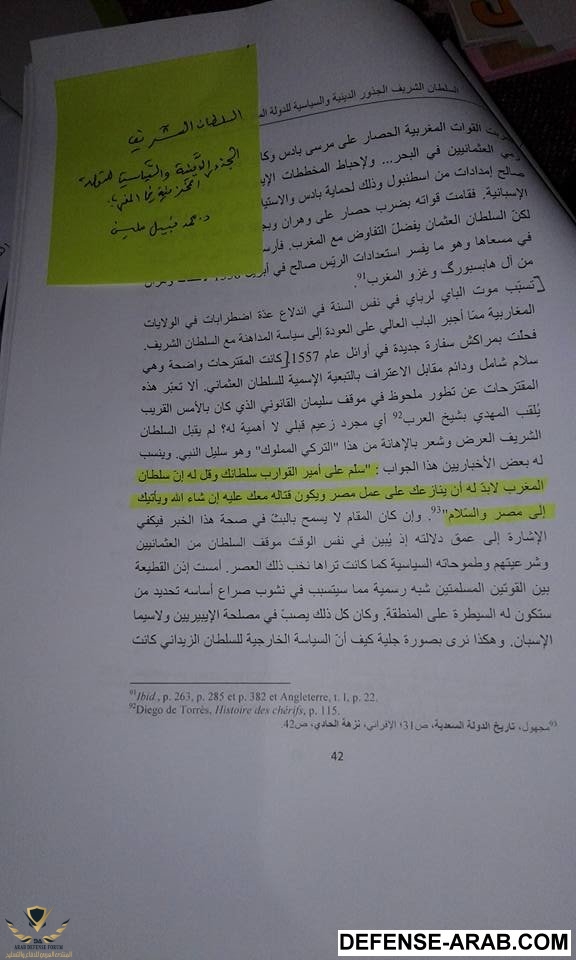 السلطان الشريف الجذور الدينية والسياسية للدولة
السلطان الشريف
الجذور الدينية والسياسية للدولة
المخزنية في المغرب
د. محمد نبيل ملين
القوات المغربية الحصار على مرسى بادس
العثمانيين في البحر... ولإحباط المخططات
صالح إمدادات من اسطنبول وذلك لحماية بادس
الإسبانية. فقامت قواته بضرب حصار على وهران
لكنّ السلطان العثمان يفضل التفاوض مع المغرب.
في مسعاها وهو ما يفسر استعدادات الريّس صالح في
من آل هابسبورگ وغزو المغرب91.
[تسبّب موت الباي لرباي في نفس السنة في اندلاع عدّة اضطرابات في الولايات
المغاربية ممّا أجبر الباب العالي على العودة إلى سياسة المداهنة مع السلطان الشريف.
فحلّت بمراكش سفارة جديدة في أوائل عام 1557.[كانت المقترحات واضحة وهي
سلام شامل ودائم مقابل الاعتراف بالتبعية الإسمية للسلطان العثماني. ألا تعبّر هذه
المقترحات عن تطور ملحوظ في موقف سليمان القانوني الذي كان بالأمس القريب
يُلقب المهدي بشيخ العرب92 أي مجرد زعيم قبلي لا أهمية له؟ لم يقبل السلطان
الشريف العرض وشعر بالإهانة من هذا "التركي المملوك" وهو سليل النبي. وينسب
له بعض الأخباريين هذا الجواب : "سلم على أمير القوارب سلطانك وقل له إنّ سلطان
المغرب لابدّ له أن ينازعك على عمل مصر ويكون قتاله معك عليه إن شاء الله ويأتيك
إلى مصر والسّلام"93. وإن كان المقام لا يسمح بالبتّ في صحة هذا الخبر فيكفي
الإشارة إلى عمق دلالته إذ يُبين في نفس الوقت موقف السلطان من العثمانيين
وشرعيتهم وطموحاته السياسية كما كانت تراها نخب ذلك العصر. أمست إذن القطيعة
بين القوتين المسلمتين شبه رسمية مما سيتسبب في نشوب صراع أساسه تحديد من
ستكون له السيطرة على المنطقة. وكان كل ذلك يصبّ في مصلحة الإيبيريين ولاسيما
الإسبان. وهكذا نرى بصورة جلية كيف أنّ السياسة الخارجية للسلطان الزيداني كانت
91Ibid , p. 263, p. 285 et p. 382 et Angleterre, t. I, p. 22.
92Diego de Torrès, Histoire des chérifs, p. 115.
93مجهول، تاريخ الدولة السعدية، ص31؛ الإفراني، نزهة الحادي، ص42.
42
ARAB DEFENSE FORUM
المنتدى العربي للدفاع والتسليح
DEFENSE-ARAB.COM